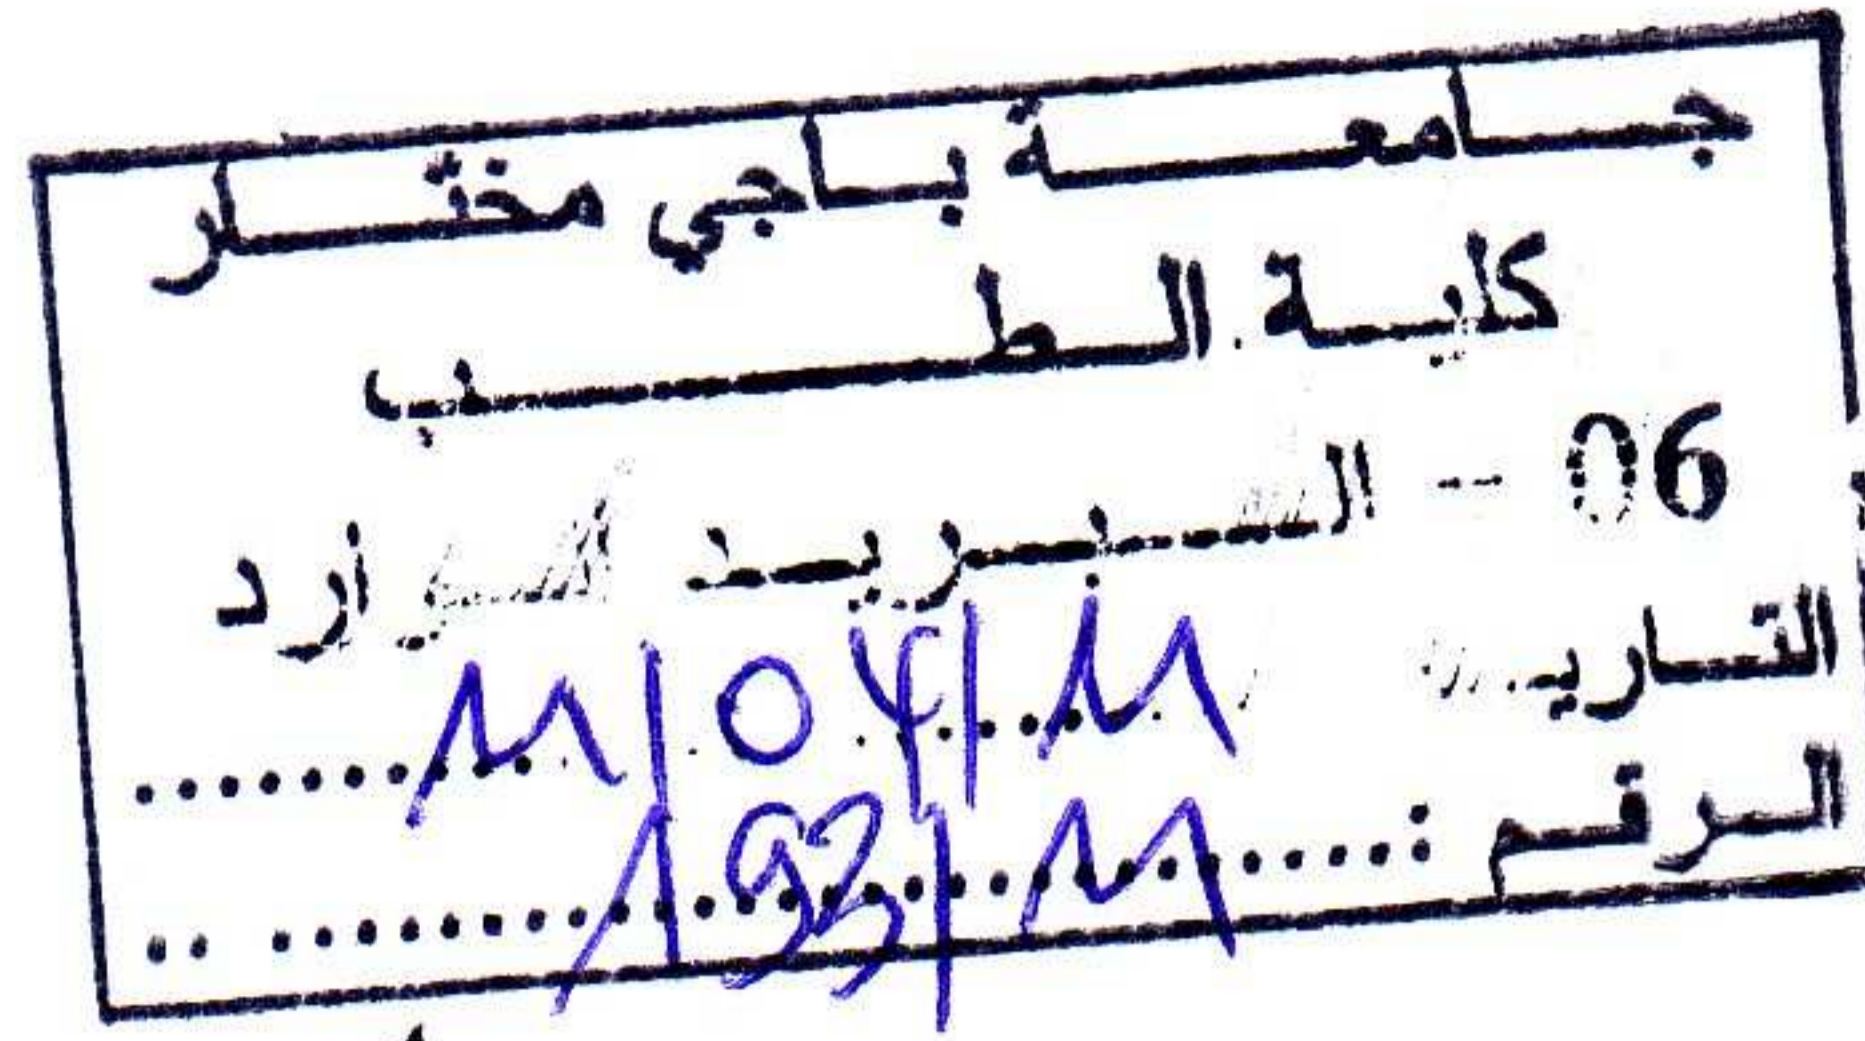 جامعة باجي مختار
كلية الطب
06 - البريد الوارد
التاريخ 11/04/11
الرقم : 193/11